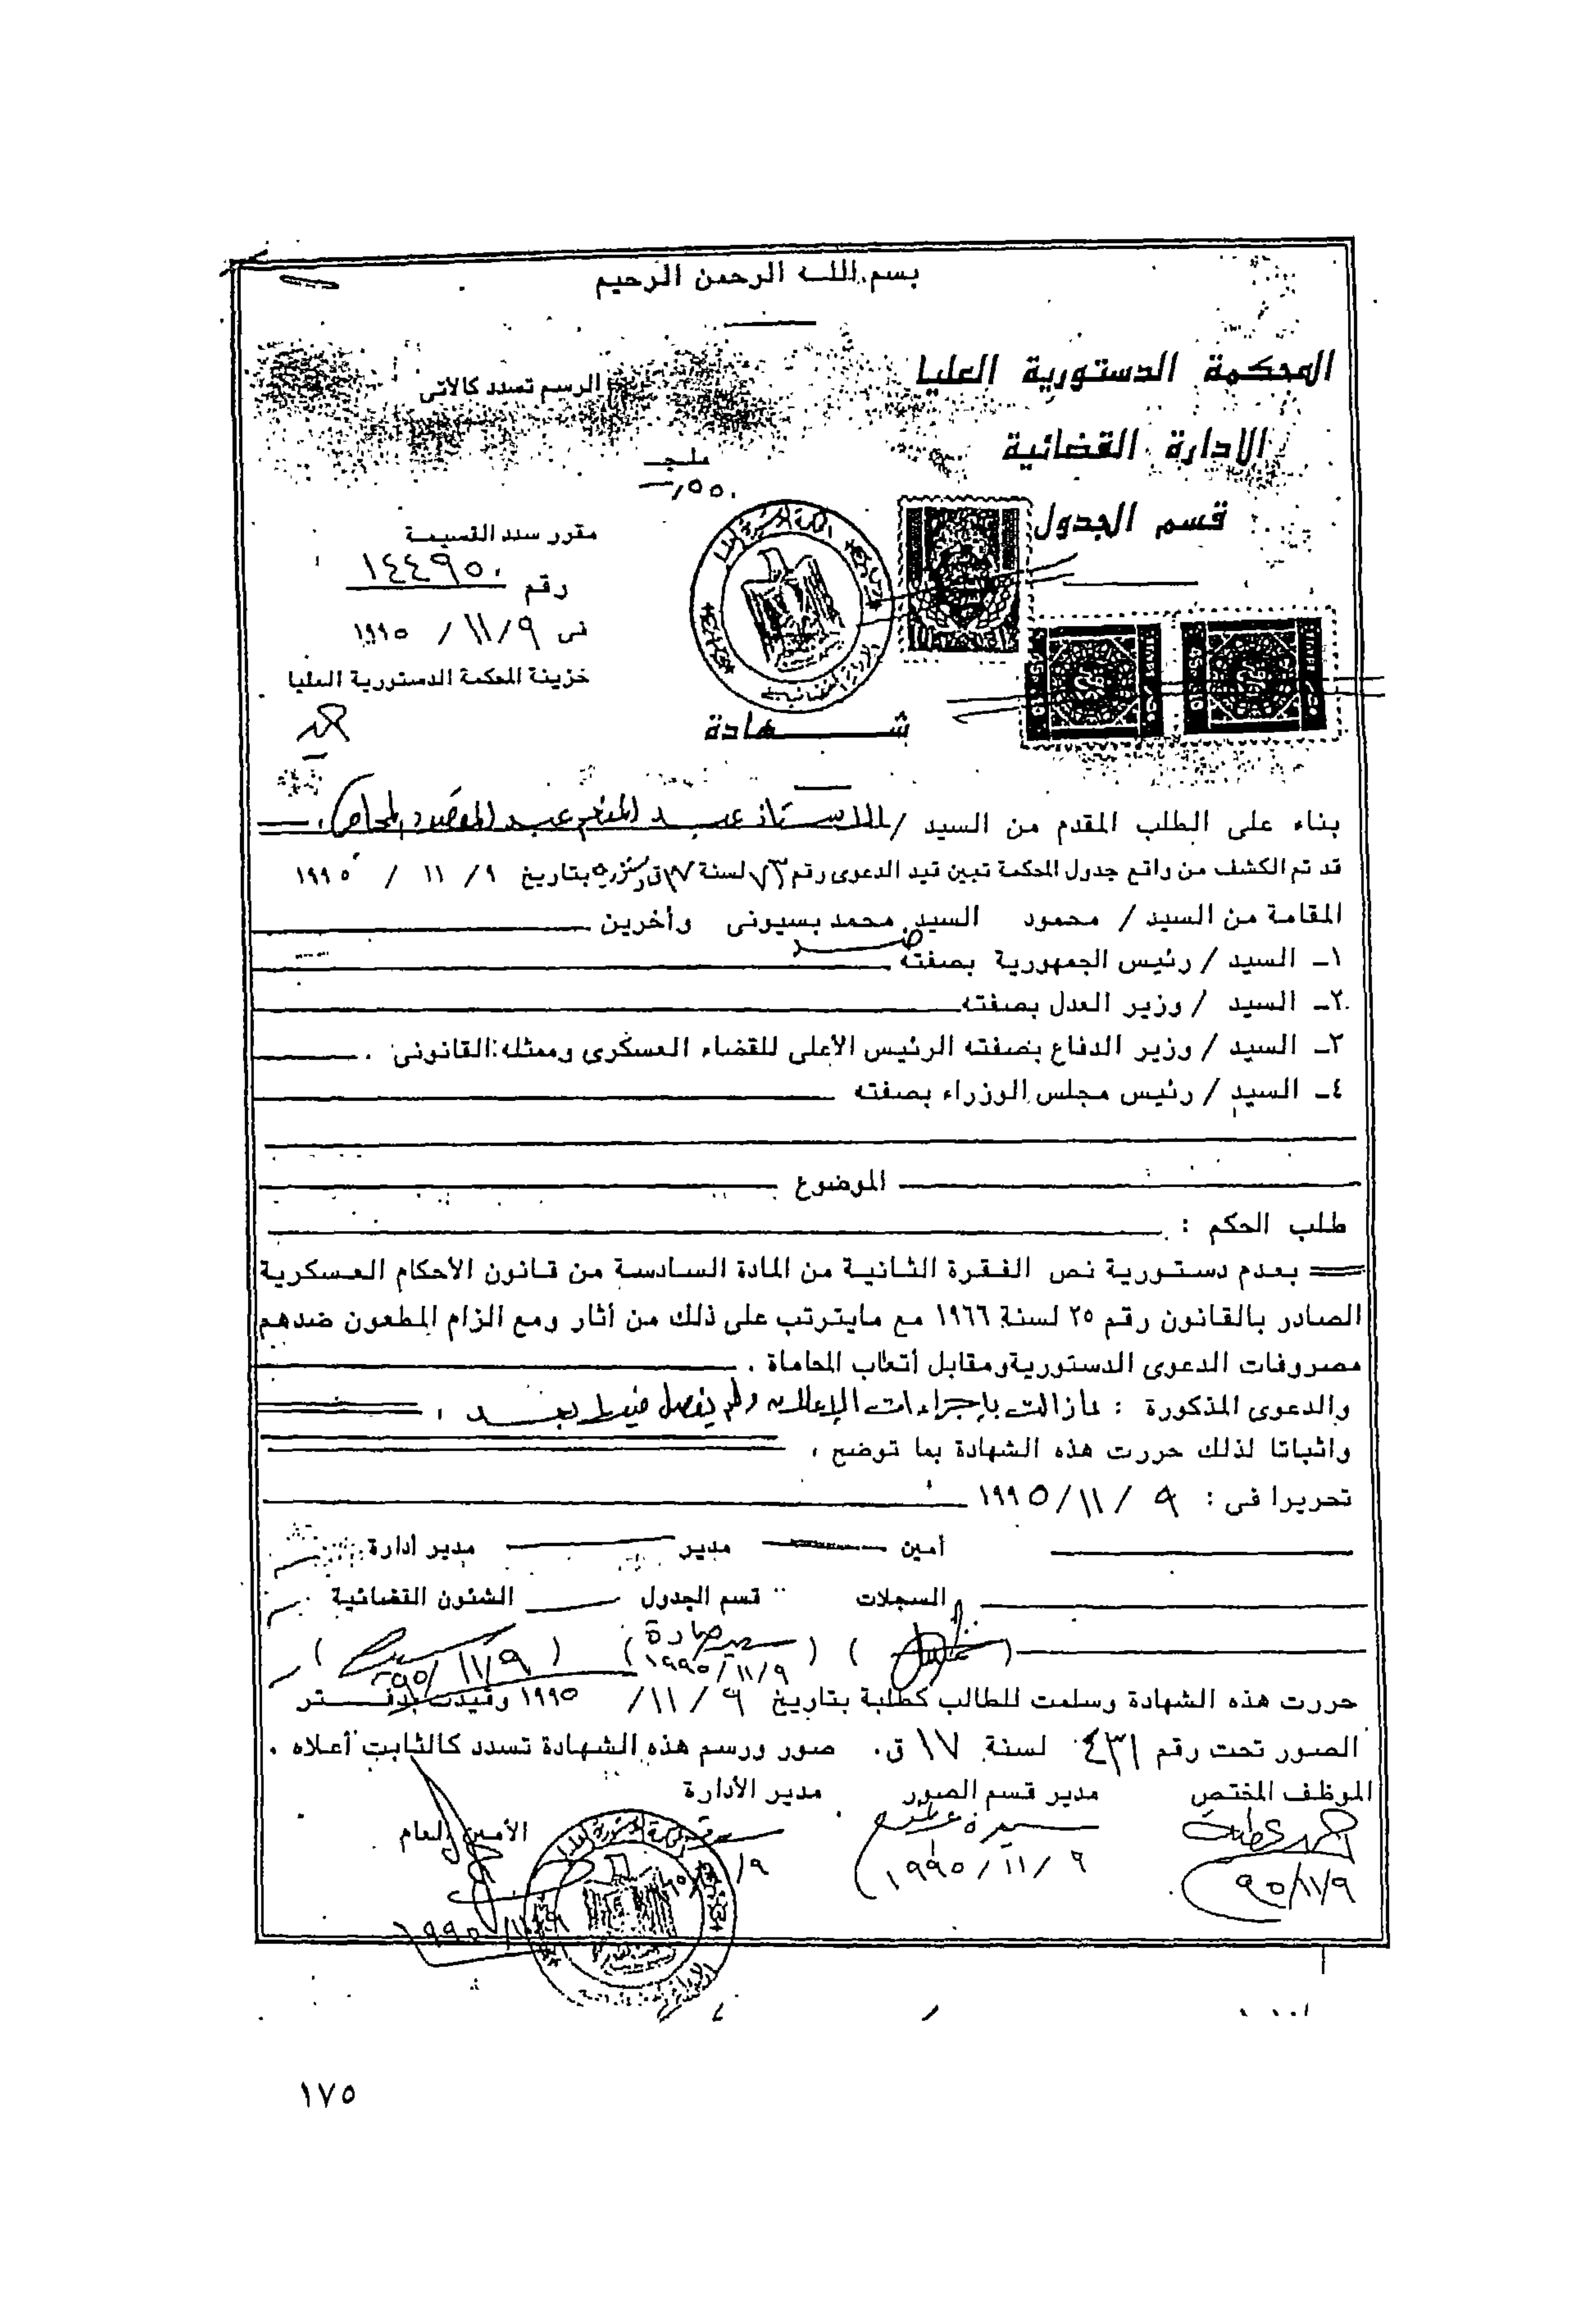 بسم الله الرحمن الرحيم
المحكمة الدستورية العليا
الادارة القضائية
قسم الجدول
الرسم تسدد كالاتى
مليجـ
٥٥٠ر ــ
مقرر سدد القسيمة
رقم ١٤٤٩٥٠
فى ٩/ ١١/ ١٩٩٥
خزينة المحكمة الدستورية العليا
شـــــهادة
بناء على الطلب المقدم من السيد / الأستاذ عبد المنعم عبد المقصود المحامى .
قد تم الكشف من واقع جدول المحكمة تبين قيد الدعوى رقم ٧٣ لسنة ١٧ ق دستورية بتاريخ ٩/ ١١ / ١٩٩٥
المقامة من السيد / محمود السيد محمد بسيونى وأخرين
ضـــد
١ـ السيد / رئيس الجمهورية بصفته
٢ـ السيد / وزير العدل بصفته
٣ـ السيد / وزير الدفاع بصفته الرئيس الأعلى للقضاء العسكرى وممثله القانونى .
٤ـ السيد / رئيس مجلس الوزراء بصفته
الموضوع
طلب الحكم :
بعدم دستورية نص الفقرة الثانية من المادة السادسة من قانون الأحكام العسكرية
الصادر بالقانون رقم ٢٥ لسنة ١٩٦٦ مع مايترتب على ذلك من أثار ومع الزام المطعون ضدهم
مصروفات الدعوى الدستورية ومقابل أتعاب المحاماة .
والدعوى المذكورة : مازالت بإجراءات الإعلان ولم يفصل فيها بعد .
واثباتا لذلك حررت هذه الشهادة بما توضح ،
تحريرا فى : ٩ /١١/ ١٩٩٥
أمين مدير مدير أدارة
السجلات قسم الجدول الشئون القضائية
١٩٩٥/١١/٩ ٩٥/١١/٩
حررت هذه الشهادة وسلمت للطالب كطلبة بتاريخ ٩ / ١١/ ١٩٩٥ وقيدت بدفـــتر
الصور تحت رقم ٤٣١ لسنة ١٧ ق. صور ورسم هذه الشهادة تسدد كالثابت أعلاه .
الموظف المختص مدير قسم الصور مدير الأدارة
الأمين العام
٩٥/١١/٩ ١٩٩٥/١١/٩
١٧٥